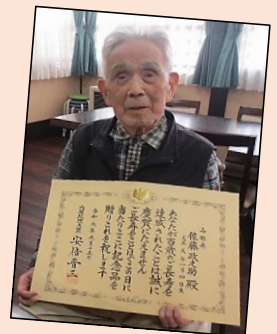 山形県
佐藤政之助 殿
あなたが百歳のご長寿を
達成されたことは誠に
慶賀にたえません
ご長寿をことほぐこの日に
当たりここに記念品を
贈りこれを祝します
令和元年九月十五日
内閣総理大臣 安倍晋三